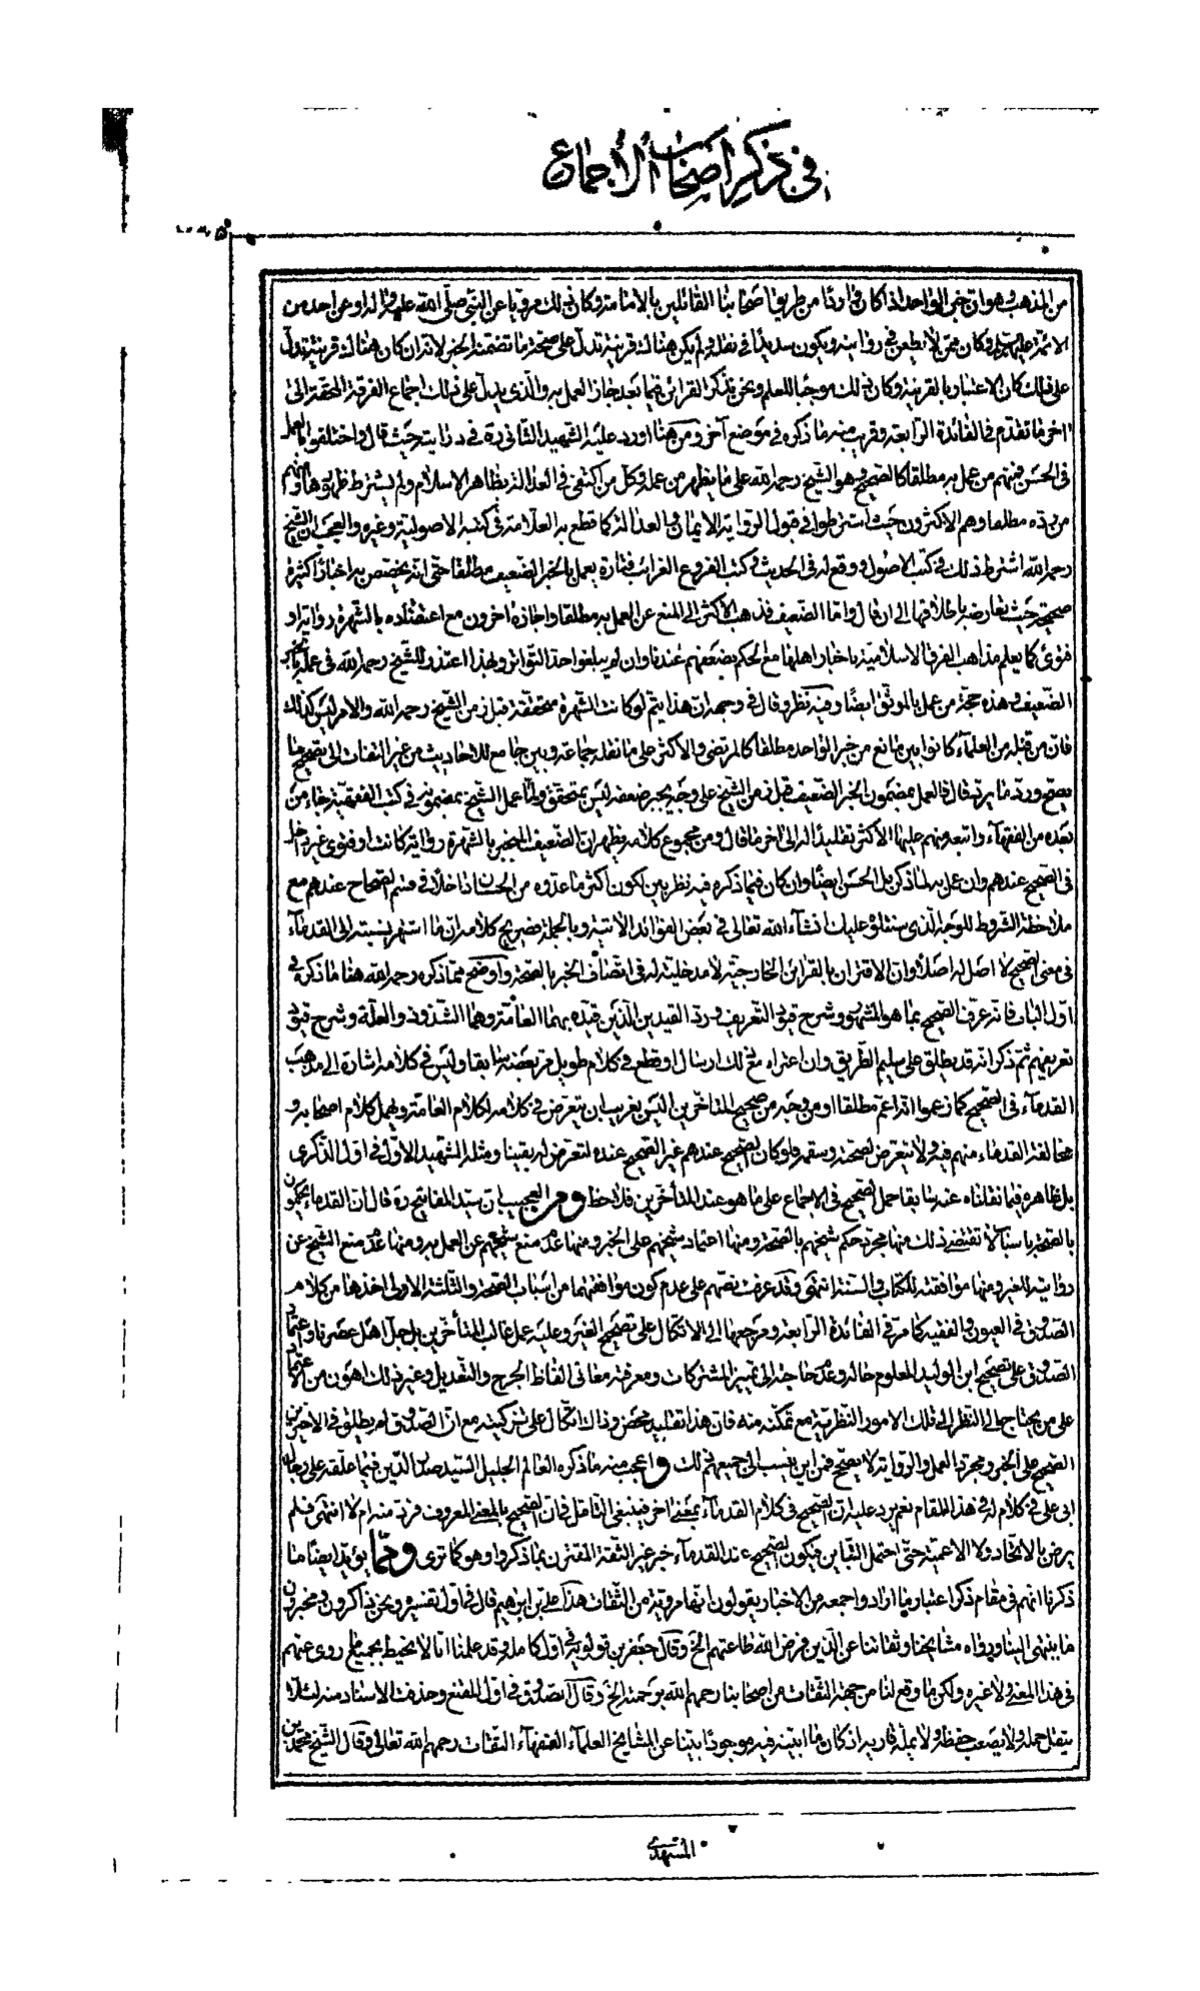 في ذكر اصحاب الاجماع
من المذهب وهو ان خبر الواحد اذا كان واردا من طريق اصحابنا القائلين بالامامة وكان ذلك مرويا عن النبي صلى الله عليه واله او عن احد من
الائمة عليهم السلام وكان ممن لا يطعن في روايته ويكون سديدا في نقله ولم يكن هناك قرينة تدل على صحة ما تضمنه الخبر لانه ان كان هناك قرينة تدل
على ذلك كان الاعتبار بالقرينة وكان ذلك موجبا للعلم ونحن نذكر القرائن فيما بعد جاز العمل به والذي يدل على ذلك اجماع الفرقة المحقة الى
اخر ما تقدم في الفائدة الرابعة وقريب منه ما ذكره في موضع آخر ومن هنا اورد عليه الشهيد الثاني ره في درايته حيث قال واختلفوا في العمل
في الحسن فمنهم من عمل به مطلقا كالصحيح وهو الشيخ رحمه الله على ما يظهر من عمله وكل من اكتفى في العدالة بظاهر الاسلام ولم يشترط ظهورها ومنهم
من رده مطلقا وهم الاكثرون حيث اشترطوا في قبول الرواية الايمان والعدالة كما قطع به العلامة في كتبه الاصولية وغيره والعجب ان الشيخ
رحمه الله اشترط ذلك في كتب الاصول ووقع له في الحديث وكتب الفروع الغرائب فتارة يعمل بالخبر الضعيف مطلقا حتى انه يخصص به اخبارا كثيرة
صحيحة حيث تعارضه باطلاقها الى ان قال واما الضعيف فذهب الاكثر الى المنع عن العمل به مطلقا واجازه اخرون مع اعتضاده بالشهرة رواية او
فتوى كما يعلم مذاهب الفرق الاسلامية باخبار اهلها مع الحكم بضعفهم عندنا وان لم يبلغوا حد التواتر وبهذا اعتذر للشيخ رحمه الله في عمله بالخبر
الضعيف وهذه حجة من عمل بالموثق ايضا وفيه نظر وقال في وجهه ان هذا يتم لو كانت الشهرة متحققة قبل زمن الشيخ رحمه الله والامر ليس كذلك
فان من قبله من العلماء كانوا بين مانع من خبر الواحد مطلقا كالمرتضى والاكثر على ما نقله جماعة وبين جامع للاحاديث من غير التفات الى تصحيح ما
يصح ورد ما يرد قال فالعمل بمضمون الخبر الضعيف قبل زمن الشيخ على وجه يجبر ضعفه ليس بمتحقق ولما عمل الشيخ بمضمونه في كتبه الفقهية جاء من
بعده من الفقهاء واتبعه منهم عليها الاكثر تقليدا له الى اخر ما قال ومن مجموع كلامه يظهر ان الضعيف المنجبر بالشهرة رواية كانت او فتوى غير داخل
في الصحيح عندهم وان عمل به لما ذكر بل الحسن ايضا وان كان فيما ذكره فيه نظر بين لكون اكثر ما عدوه من الحسان داخلا في قسم الصحاح عندهم مع
ملاحظة الشروط للوجه الذي سنتلو عليك انشاء الله تعالى في بعض الفوائد الاتية وبالجملة فصريح كلامه ان ما اشتهر نسبته الى القدماء
في معنى الصحيح لا اصل له اصلا وان الاقتران بالقرائن الخارجية لا مدخلية له في اتصاف الخبر بالصحة واوضح مما ذكره رحمه الله هنا ما ذكره في
اول الباب فانه عرف الصحيح بما هو المشهور وشرح قيود التعريف ورد القيدين الذين قيده بهما العامة وهما الشذوذ والعلة وشرح قيود
تعريفهم ثم ذكر انه قد يطلق على سليم الطريق وان اعتراه مع ذلك ارسال او قطع في كلام طويل مر بعضه سابقا وليس في كلامه اشارة الى مذهب
القدماء في الصحيح كما زعموا انه اعم مطلقا او من وجه من صحيح المتاخرين اليس بغريب ان يتعرض في كلامه لكلام العامة ويهمل كلام اصحابه و
مخالفة القدماء منهم فيه ولا يتعرض لصحته وسقمه فلو كان الصحيح عندهم غير الصحيح عنده لتعرض له يقينا ومثله الشهيد الاول في اول الذكرى
بل ظاهره فيما نقلناه عنه سابقا حمل الصحيح في الاجماع على ما هو عند المتأخرين فلاحظ ومن العجيب ان سيد المفاتيح ره قال ان القدماء يحكمون
بالصحة باسباب لا تقتضي ذلك منها مجرد حكم شيخهم بالصحة ومنها اعتماد شيخهم على الخبر ومنها عدم منع شيخهم عن العمل به ومنها عدم منع الشيخ عن
رواية الخبر ومنها موافقته للكتاب والسنة انتهى وقد عرفت نصهم على عدم كون موافقتهما من اسباب الصحة والثلثة الاولى اخذها من كلام
الصدوق في العيون والفقيه كما مر في الفائدة الرابعة ومرجعها الى الاتكال على تصحيح الغير وعليه عمل غالب المتأخرين بل جل اهل عصرنا واعتماد
الصدوق على تصحيح ابن الوليد المعلوم حاله وعدم حاجته الى تمييز المشتركات ومعرفة معاني الفاظ الجرح والتعديل وغير ذلك اهون من الاعتماد
على من يحتاج الى النظر الى تلك الامور النظرية مع تمكنه منه فان هذا تقليد محض وذاك اتكال على تزكيته مع ان الصدوق لم يطلق في الاخيرين
الصحيح على الخبر ومجرد العمل والرواية لا يصحح فمن اين ينسب الى جميعهم ذلك واعجب منه ما ذكره العالم الجليل السيد صدر الدين فيما علقه على رجال
ابي علي في كلام له في هذا المقام نعم يرد عليه ان الصحيح في كلام القدماء بمعنى اخر فينبغي التامل في ان الصحيح بالمعنى المعروف فرد منه ام لا انتهى فلم
يرض بالاتحاد ولا الاعمية حتى احتمل التباين فيكون الصحيح عند القدماء خبر غير الثقة المقترن بما ذكروا وهو كما ترى ومما يؤيد ايضا ما
ذكرنا انهم في مقام ذكر اعتبار ما ارادوا جمعه من الاخبار يقولون انها مروية من الثقات هذا علي بن ابرهيم قال في اول تفسيره ونحن ذاكرون ومخبرون
ما ينتهى الينا ورواه مشايخنا وثقاتنا عن الذين فرض الله طاعتهم الخ وقال جعفر بن قولويه في اول كامله وقد علمنا انا لا نحيط بجميع ما روى عنهم
في هذا المعنى ولا غيره ولكن ما وقع لنا من جهة الثقات من اصحابنا رحمهم الله برحمته الخ وقال الصدوق في اول المقنع وحذفت الاسناد منه لئلا
يثقل حمله ولا يصعب حفظه ولا يمله قاريه اذ كان ما ابينه فيه موجودا بينا عن المشايخ العلماء الفقهاء الثقات رحمهم الله تعالى وقال الشيخ محمد بن
المشهدي